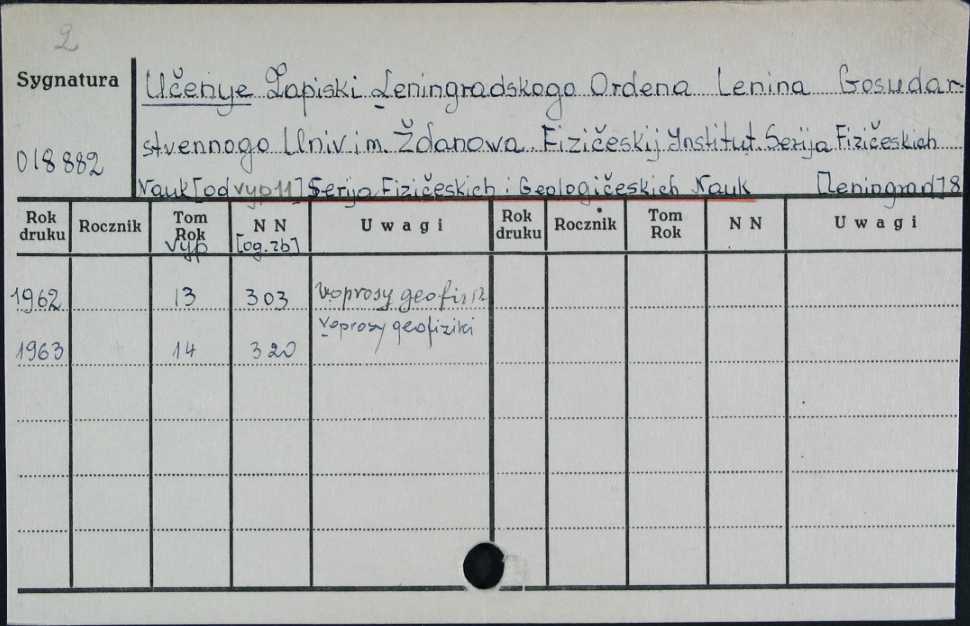 2
Sygnatura
Učenye Zapiski Leningradskogo Ordena Lenina Gosudar-
stvennogo Univ. im. Ždanowa. Fizičeskij Institut. Serija Fizičeskich
018882
Nauk [od vyp 11] Serija Fizičeskich i Geologičeskich Nauk [Leningrad] 8
Rok druku Rocznik Tom Rok N N Uwagi Rok druku Rocznik Tom Rok N N Uwagi
vyp [og. zb]
1962 13 303 Voprosy geofizik
Voprosy geofiziki
1963 14 320